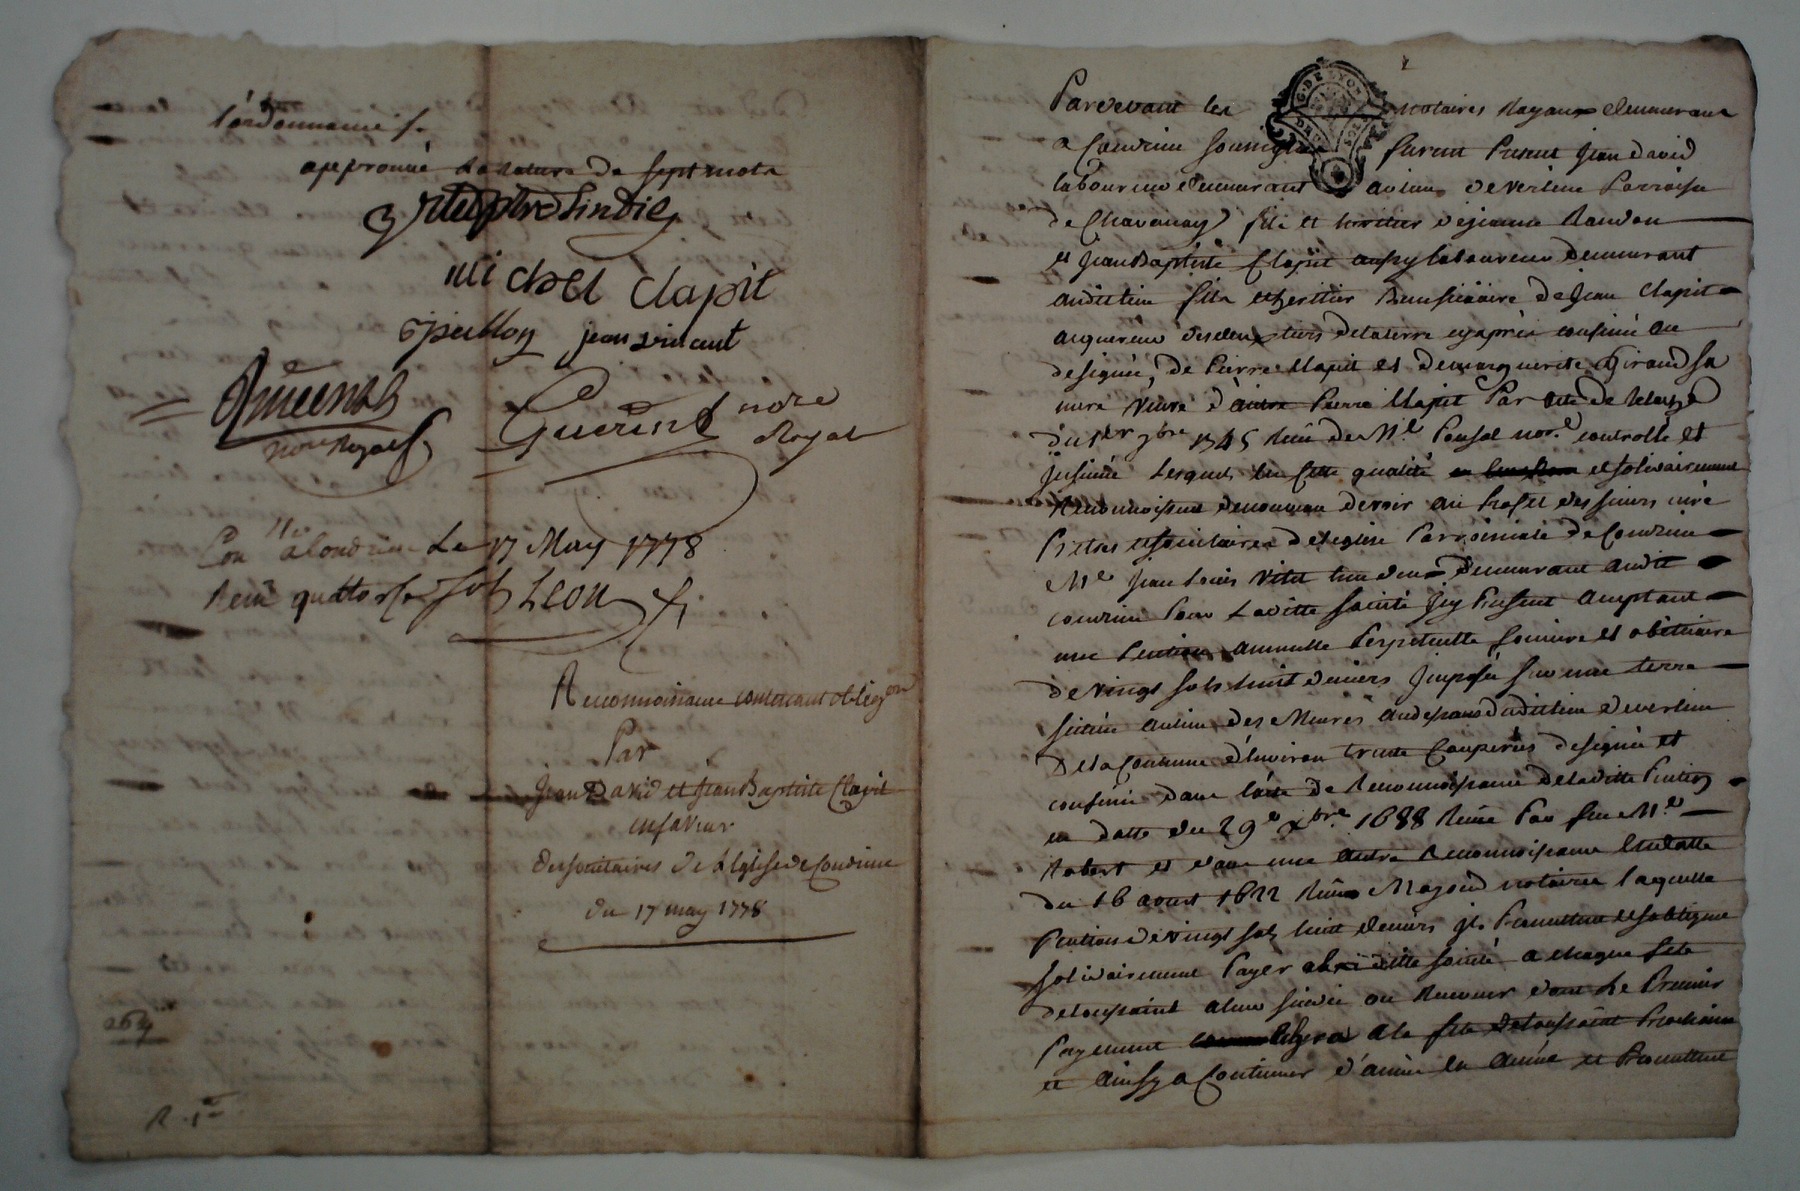 l'ordonnance /.
approuvé la rature de sept mots
Michel Clapit
jean vincent
notre Royal
Guerin notre
Royal
Con^lle a Condrieu Le 17 May 1778
Reçu quatorse sols Leon
Reconnoissance contenant oblig^on
Par
Jean David et Jean Baptiste Clapit
en faveur
des societaires de L'Eglise de Condrieu
du 17 may 1778
264
R. 1^re
G. DE LYON
Pardevant les notaires Royaux demeurant
a Condrieu soussignés furent Presents Jean David
laboureur demeurant au lieu de Verlieu Parroisse
de Chavanay fils et heritier de jeanne Randon
et Jean Baptiste Clapit aussy laboureur demeurant
audit lieu fils et heritier Beneficiaire de Jean Clapit
acquereur des deux tiers de la terre cy après confinée ou
designée, de Pierre Clapit et de marguerite Giraud sa
mere veuve d'autre Pierre Clapit Par acte de
du 1er 7bre 1745 Reçu de M.e Ponsol no.re controllé et
Jnsinué Lesquels en cette qualité et solidairement
Reconnoissent de nouveau devoir au profit des sieurs curé
Pretres et societaires de leglise Parroissiale de Condrieu
M.e Jean Louis Vitet l'un d'eux demeurant audit
Condrieu Pour Laditte societé Jcy Present acceptant
une Pention annuelle Perpetuelle fonciere et obituaire
de vingt sols huit deniers Jmposée sur une terre
scituée au lieu des Mures au dessous dudit lieu de verlieu
De la Contenue d'Environ trente Couperées designée et
confinée dans l'acte de Reconnoissance de laditte Pention
en datte du 29e Xbre 1688 Reçu Par feu M.e
Robert et dans une autre Reconnoissance En datte
du 16 aoust 1622 Reçue notaire laquelle
Pention de vingt sols huit deniers Jls Promettent et s'obligent
solidairement Payer a la ditte societé a chaque fete
de toussaint a leur sindic ou Receveur dont Le Premier
Payement a la fete de toussaint Prochaine
et ainsy a Continuer d'année En année et Promettent